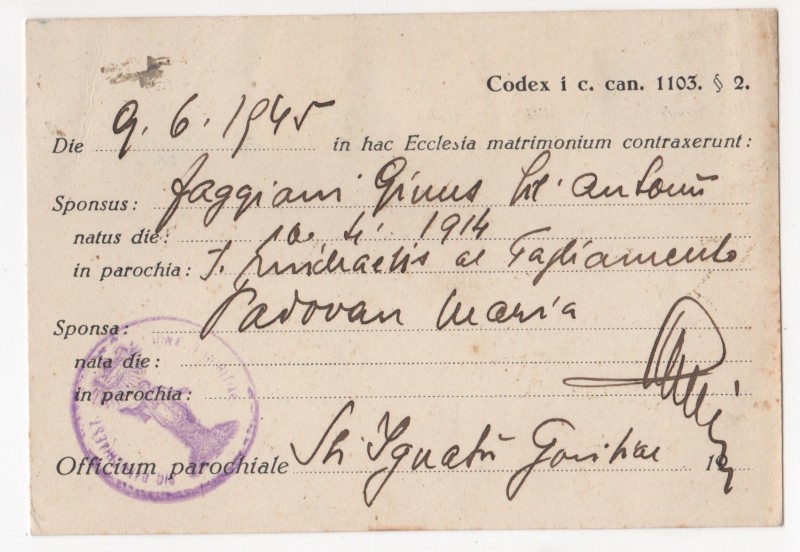 Codex i c. can. 1103. § 2.
Die 9. 6. 1945 in hac Ecclesia matrimonium contraxerunt:
Sponsus: Faggiani Ginus fil. Antonii
natus die: 10. 4. 1914
in parochia: S. Michaelis al Tagliamento
Sponsa: Padovan Maria
nata die:
in parochia:
Officium parochiale Sti Ignatii Goritiae 19